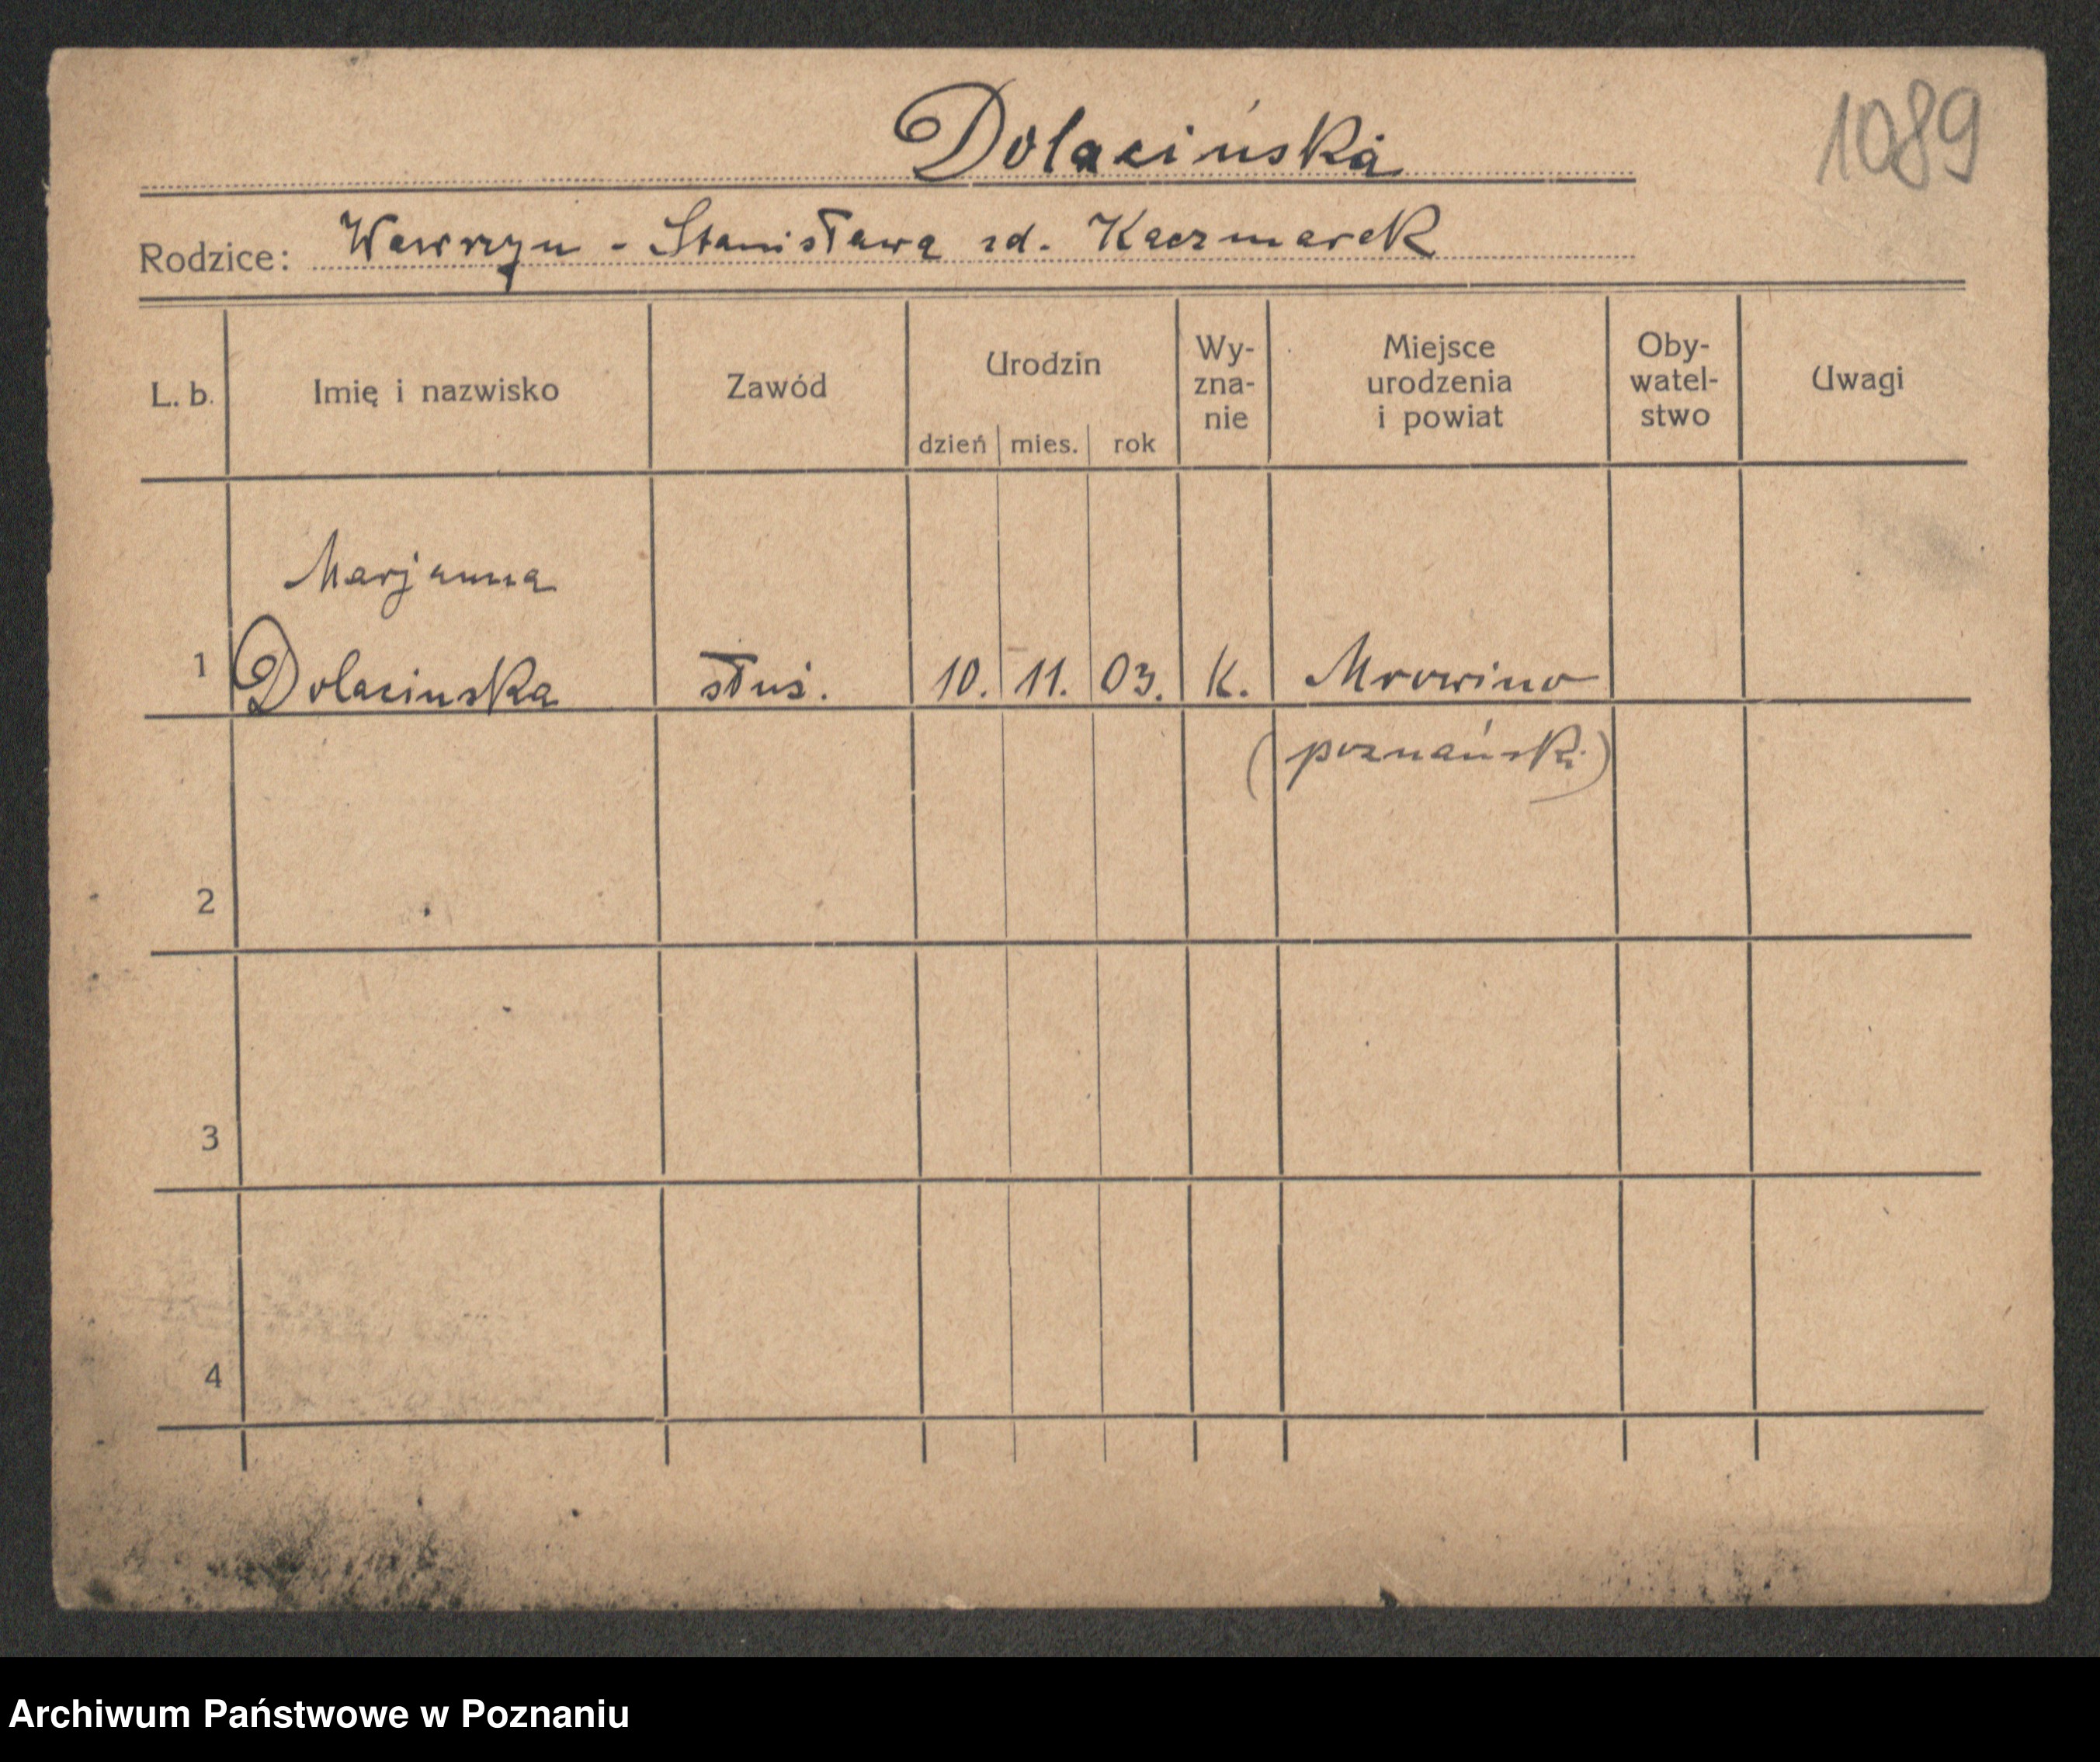 Dolacińska
1089
Rodzice: Wawrzyn - Stanisława zd. Kaczmarek
L. b. Imię i nazwisko Zawód Urodzin dzień mies. rok Wy-zna-nie Miejsce urodzenia i powiat Oby-watel-stwo Uwagi
Marjanna
1 Dolacinska służ. 10. 11. 03. K. Mrowino
(poznański)
2
3
4
Archiwum Państwowe w Poznaniu